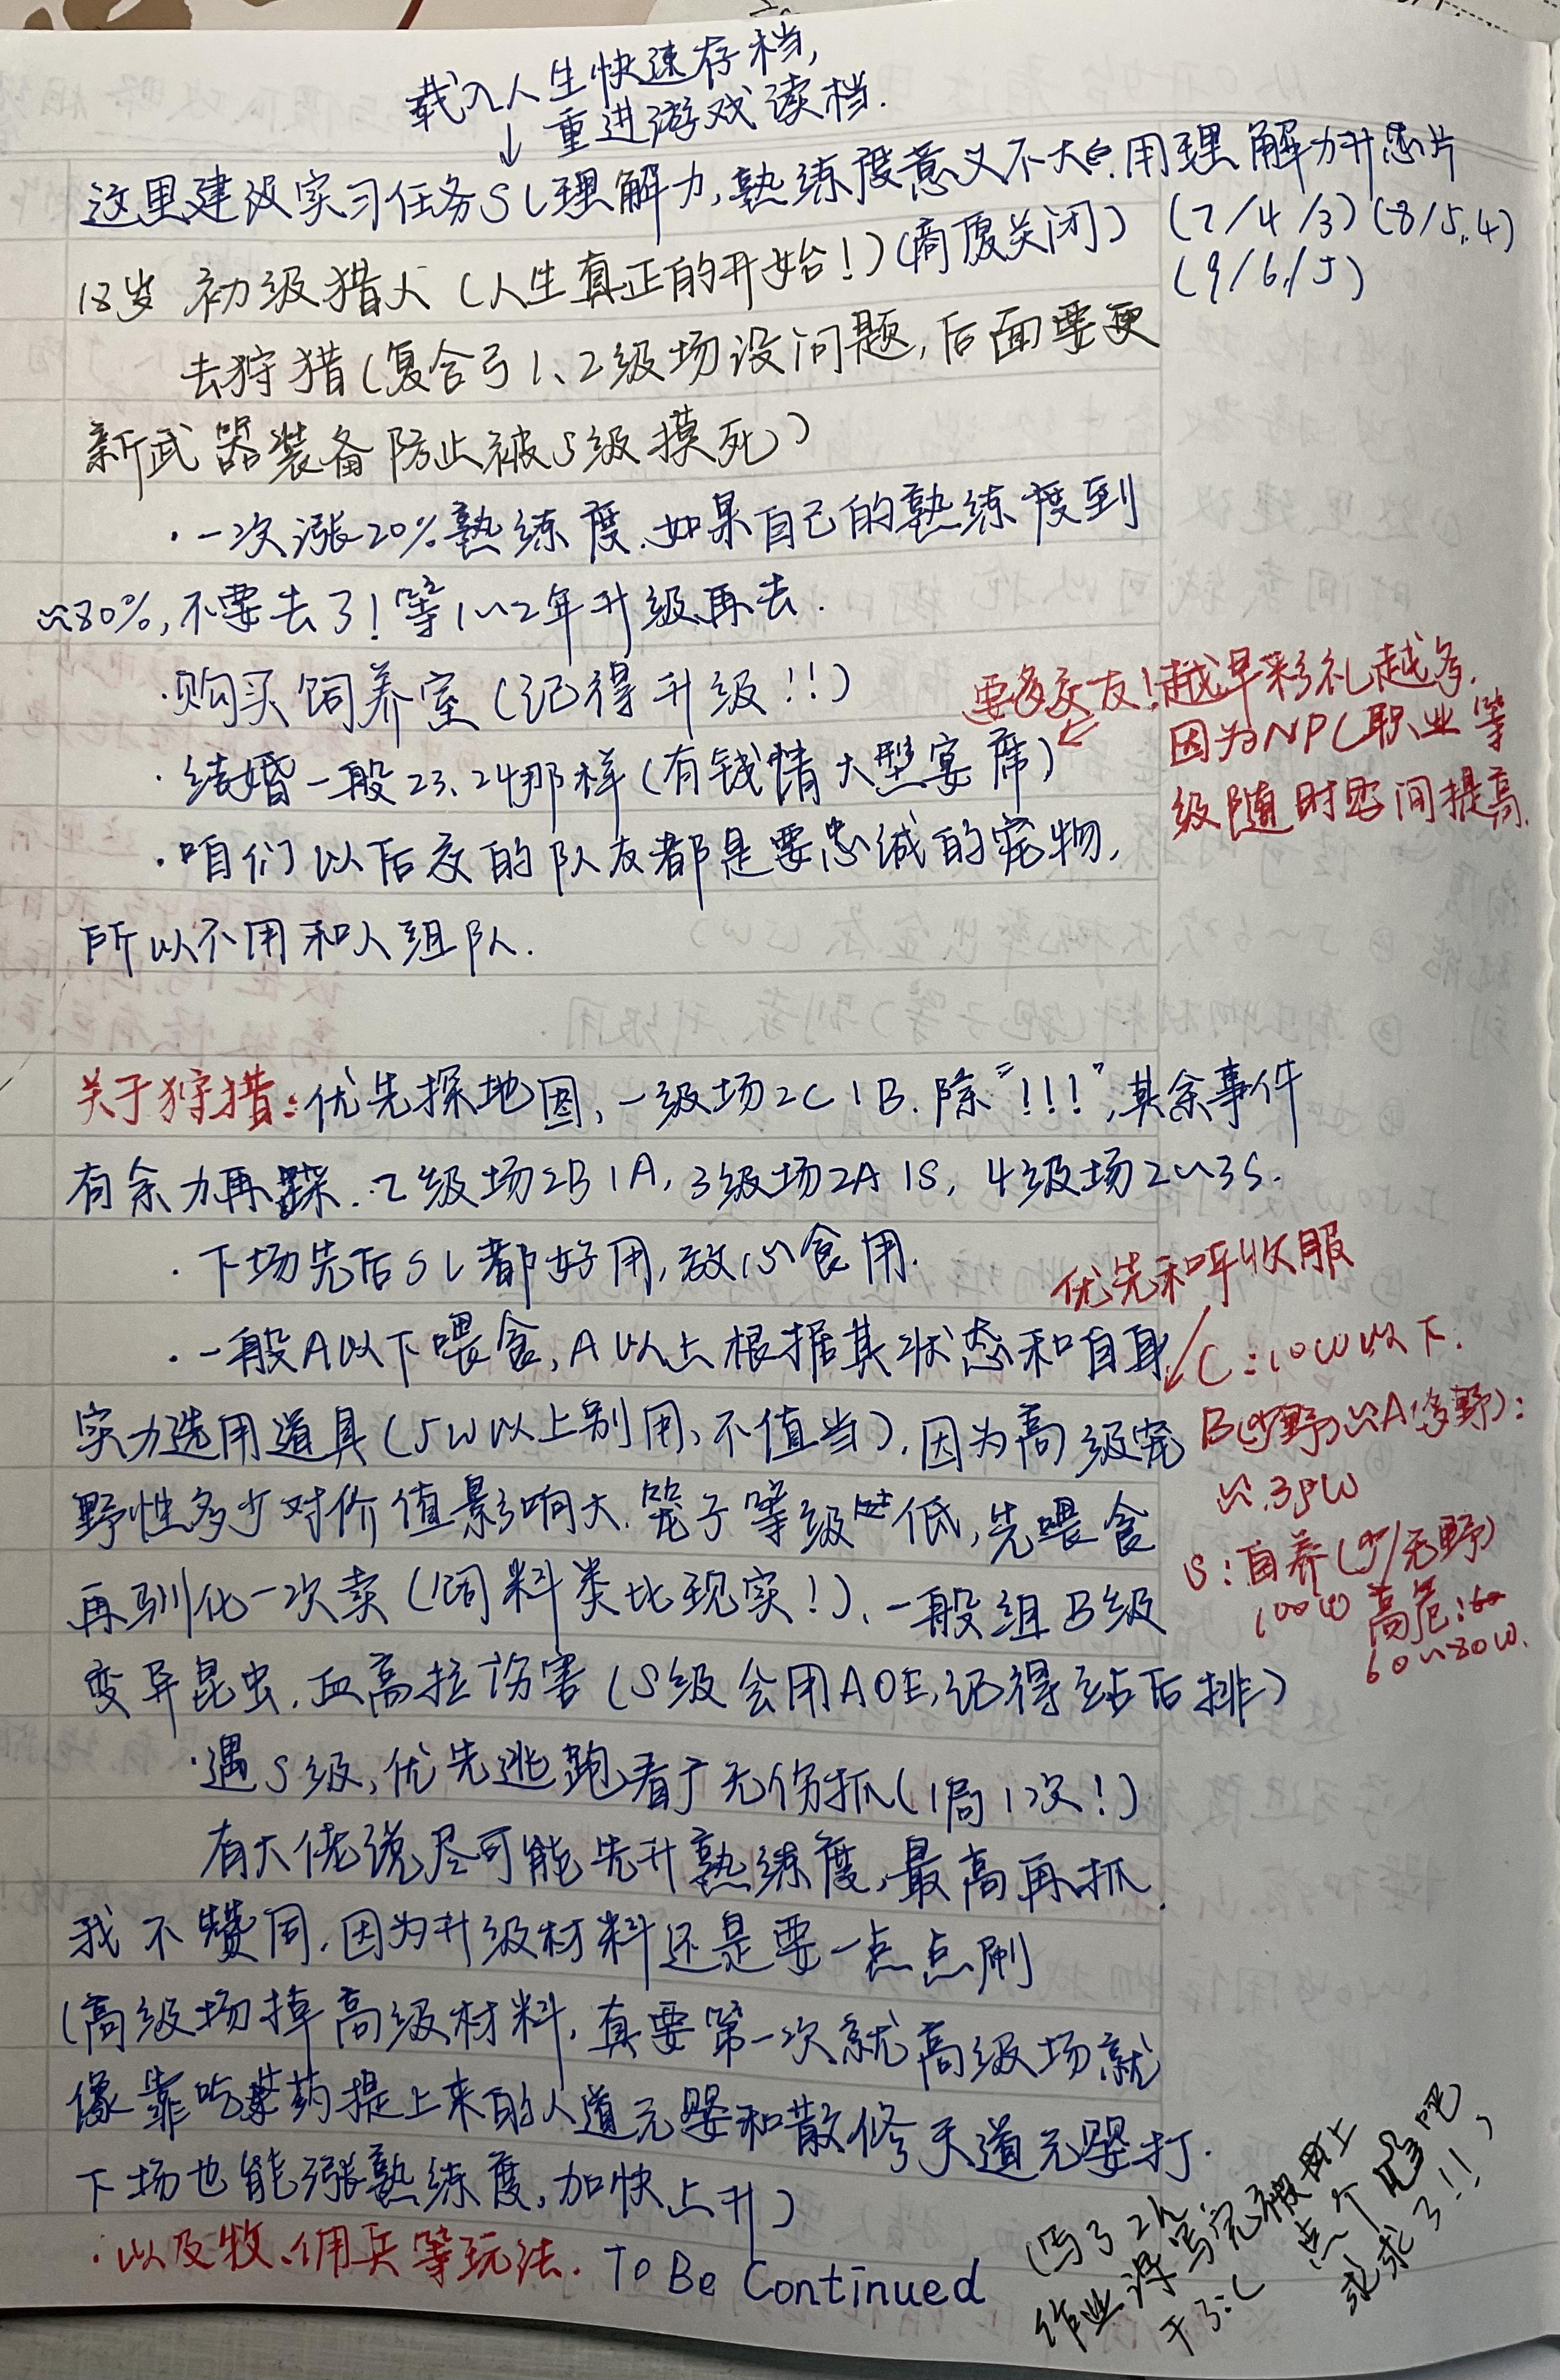 载入人生快速存档,
↓ 重进游戏读档.
这里建议实习任务SL理解力,熟练度意义不大 用理解力升芯片
(7/4/3)(8/5,4)
(9/6/5)
18岁 初级猎人(人生真正的开始!)(商厦关闭)
去狩猎(复合弓1、2级场没问题,后面要更
新武器装备防止被S级摸死)
·一次涨20%熟练度.如果自己的熟练度到
~80%,不要去了!等1~2年升级再去.
·购买饲养室(记得升级!!)
要多交友!越早彩礼越多,
因为NPC职业等
级随时间提高.
·结婚一般23、24那样(有钱情大型宴席)
·咱们以后交的队友都是要忠诚的宠物,
所以不用和人组队.
关于狩猎:优先探地图,一级场2C1B.除"!!!",其余事件
有余力再踩.2级场2B1A,3级场2A1S,4级场2~3S.
·下场先后SL都好用,放心食用.
优先和平收服
·一般A以下喂食,A以上根据其状态和自身
C:10W以下.
实力选用道具(5W以上别用,不值当),因为高级宠
B(少野)~A(多野):
~35W
野性多少对价值影响大.笼子等级低,先喂食
S:自养(少/无野)
100W 高危:
60~80W.
再驯化一次卖(饲料类比现实!).一般组B级
变异昆虫,血高拉伤害(S级会用AOE,记得站后排)
·遇S级,优先逃跑看广无伤抓(1局1次!)
有大佬说尽可能先升熟练度,最高再抓.
我不赞同,因为升级材料还是要一点点刷
(高级场掉高级材料,真要第一次就高级场就
像靠吃药提上来的人道元婴和散修天道元婴打.
下场也能涨熟练度,加快上升)
·以及牧、佣兵等玩法. To Be Continued
(写了2个
作业 写完被
干了:(
点个 吧,
求求了!!